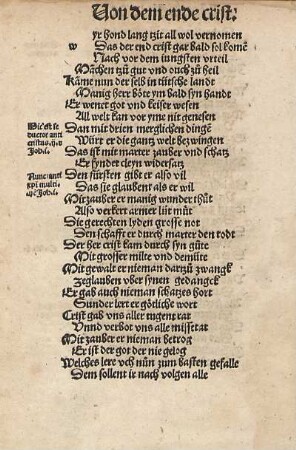 Von dem ende crist:
yr hond lang zzit all wol vernomen
w Das der end crist gar bald sol komē
Nach vor dem iungsten vrteil
Machen zů gut vnd ouch zů heil
Käme nun der selb in tütsche landt
Manig herr böte ym bald syn handt
Er wenet got vnd keiser wesen
All welt kan vor yme nit genesen
Dan mit drien merglichen dingē
Würt er die gantz welt bezwingen
Das ist mit marter zauber vnd schatz
Er synder cleyn widersatz
Den fürsten gibt er also vil
Das sie glaubent als er wil
Mit zauber er manig wunder thůt
Also verkert armer lüt můt
Die gerechten lyden grosse not
Den schafft er durch marter den todt
Der her crist kam durch syn güte
Mit grosser milte vnd demüte
Mit gewalt er nieman darzů zwangk
Zeglauben vber synen gedangck
Er gab auch nieman schatzes hort
Sunder lert er götliche wort
Crist gab vns aller tugent rat
Vnnd verbot vns alle missetat
Mit zauber er nieman betrog
Er ist der got der nie gelog
Welches lere vch nůn zum basten gefalle
Dem sollent ir nach volgen alle
Hic est se
ductor anti
cristus. ij.
Joħis.
Nunc anti
xpi multi
Joħis.